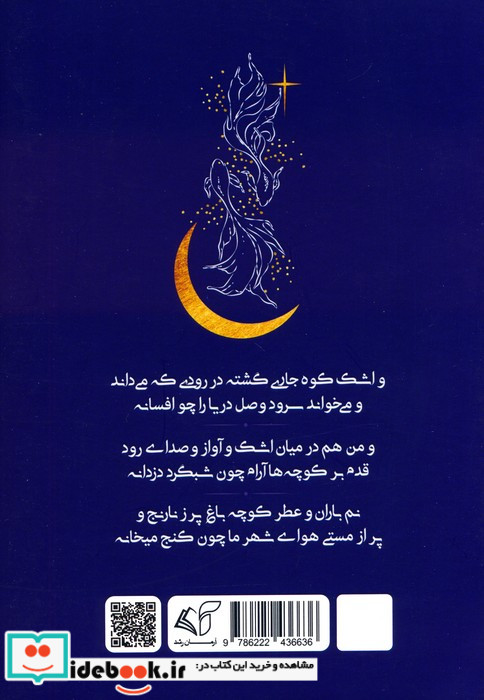 و اشک کوه جاری گشته در رودی که می‌داند
و می‌خواند سرود وصل دریا را چو افسانه
و من هم در میان اشک و آواز و صدای رود
قدم بر کوچه‌ها آرام چون شبگرد دزدانه
نم باران و عطر کوچه باغ پر ز نارنج و
پر از مستی هوای شهر ما چون کنج میخانه
آرمان رشد
9 786222 436636
idebook.ir
مشاهده و خرید این کتاب در: